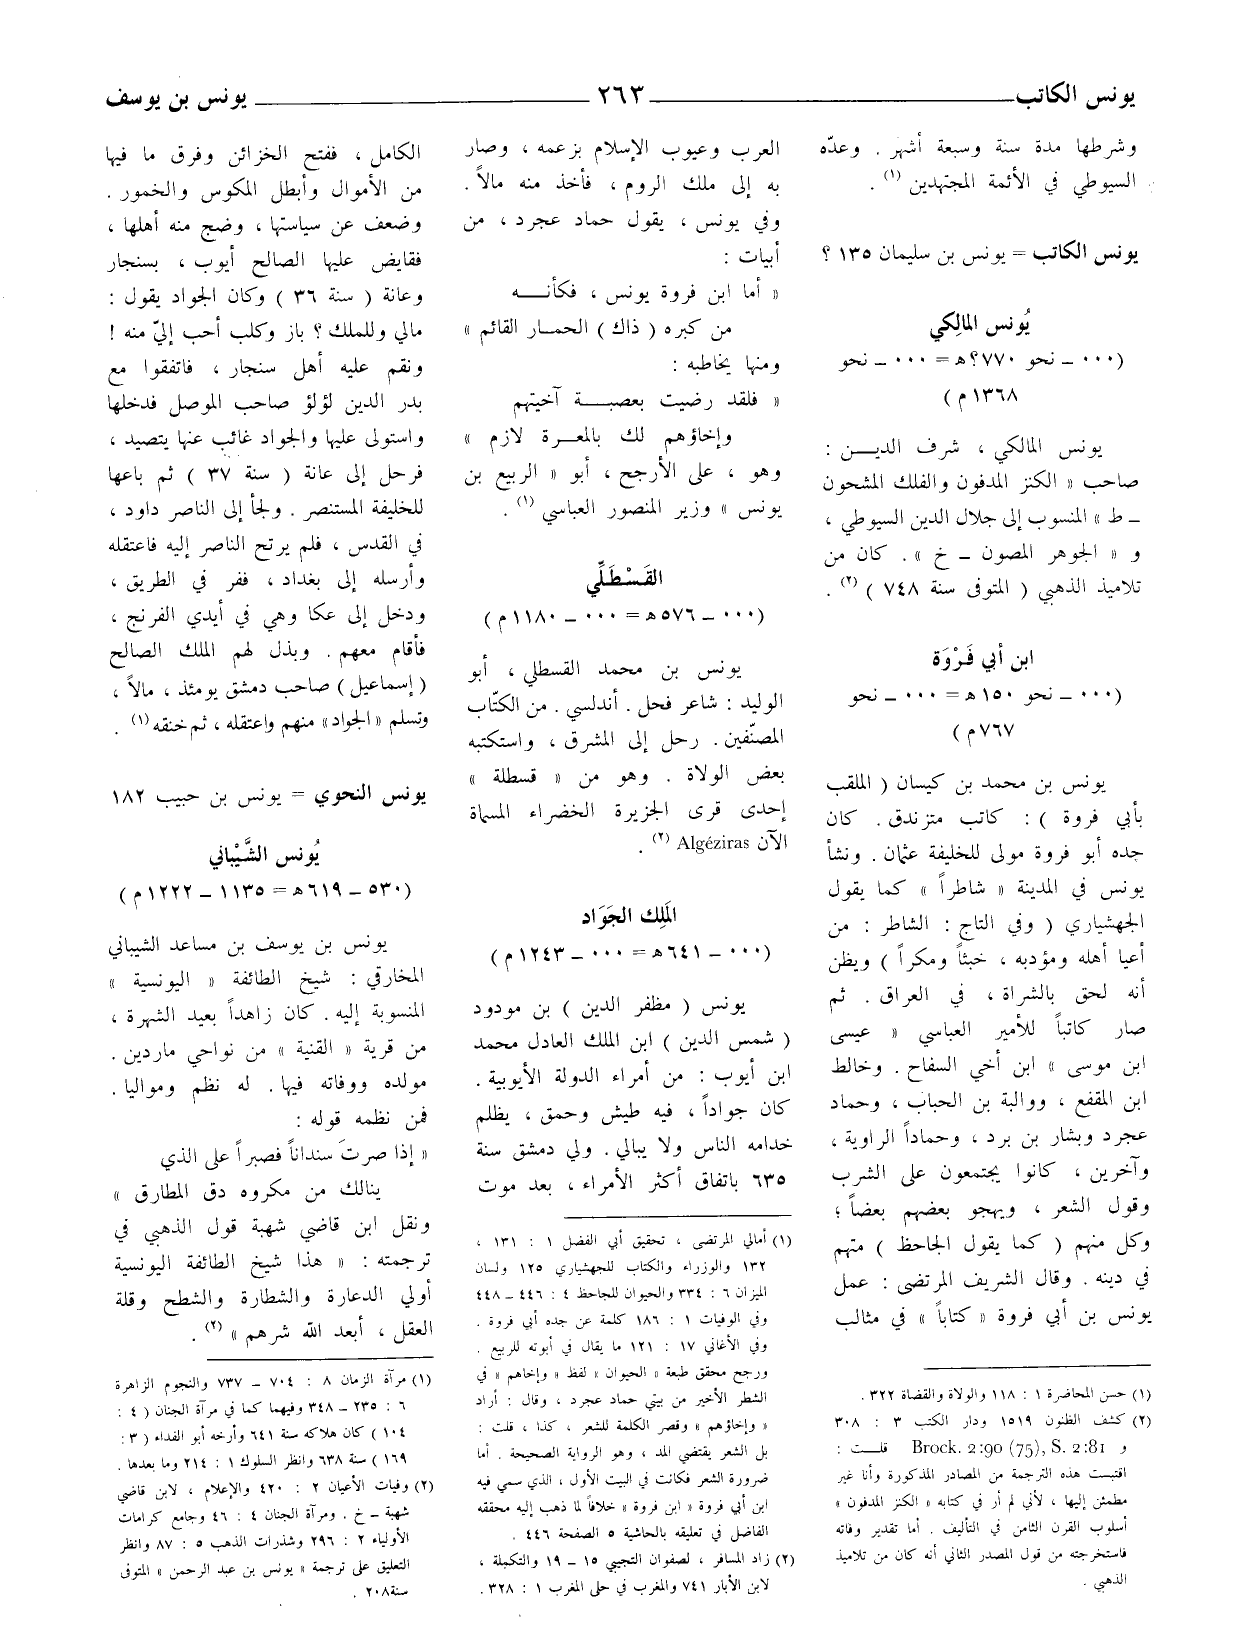 يونس الكاتب ـــ ٢٦٣ ـــ يونس بن يوسف
وشرطها مدة سنة وسبعة أشهر . وعدّه
السيوطي في الأئمة المجتهدين (١) .
يونس الكاتب = يونس بن سليمان ١٣٥ ؟
يُونس المالِكي
(٠٠٠ ـ نحو ٧٧٠؟ه = ٠٠٠ ـ نحو
١٣٦٨ م )
يونس المالكي ، شرف الديـــن :
صاحب « الكنز المدفون والفلك المشحون
ـ ط » المنسوب إلى جلال الدين السيوطي ،
و « الجوهر المصون ـ خ » . كان من
تلاميذ الذهبي ( المتوفى سنة ٧٤٨ ) (٢) .
ابن أبي فَرْوَة
(٠٠٠ ـ نحو ١٥٠ ه = ٠٠٠ ـ نحو
٧٦٧م )
يونس بن محمد بن كيسان ( الملقب
بأبي فروة ) : كاتب متزندق . كان
جده أبو فروة مولى للخليفة عثمان . ونشأ
يونس في المدينة « شاطراً » كما يقول
الجهشياري ( وفي التاج : الشاطر : من
أعيا أهله ومؤدبه ، خبثاً ومكراً ) ويظن
أنه لحق بالشراة ، في العراق . ثم
صار كاتباً للأمير العباسي « عيسى
ابن موسى » ابن أخي السفاح . وخالط
ابن المقفع ، ووالبة بن الحباب ، وحماد
عجرد وبشار بن برد ، وحماداً الراوية ،
وآخرين ، كانوا يجتمعون على الشرب
وقول الشعر ، ويهجو بعضهم بعضاً ؛
وكل منهم ( كما يقول الجاحظ ) متهم
في دينه . وقال الشريف المرتضى : عمل
يونس بن أبي فروة « كتاباً » في مثالب
(١) حسن المحاضرة ١ : ١١٨ والولاة والقضاة ٣٢٢ .
(٢) كشف الظنون ١٥١٩ ودار الكتب ٣ : ٣٠٨
و Brock. 2:90 (75), S. 2:81 قلـــت :
اقتبست هذه الترجمة من المصادر المذكورة وأنا غير
مطمئن إليها ، لأني لم أر في كتابه « الكنز المدفون »
أسلوب القرن الثامن في التأليف . أما تقدير وفاته
فاستخرجته من قول المصدر الثاني أنه كان من تلاميذ
الذهبي .
العرب وعيوب الإسلام بزعمه ، وصار
به إلى ملك الروم ، فأخذ منه مالاً .
وفي يونس ، يقول حماد عجرد ، من
أبيات :
« أما ابن فروة يونس ، فكأنـــه
من كبره ( ذاك ) الحمـار القائم »
ومنها يخاطبه :
« فلقد رضيت بعصبـــة آخيتهم
وإخاؤهم لك بالمعـــرة لازم »
وهو ، على الأرجح ، أبو « الربيع بن
يونس » وزير المنصور العباسي (١) .
القَسْطَلِّي
(٠٠٠ ـ ٥٧٦ه = ٠٠٠ ـ ١١٨٠ م )
يونس بن محمد القسطلي ، أبو
الوليد : شاعر فحل . أندلسي . من الكتّاب
المصنّفين . رحل إلى المشرق ، واستكتبه
بعض الولاة . وهو من « قسطلة »
إحدى قرى الجزيرة الخضراء المسماة
الآن Algéziras (٢) .
المَلِك الجَوَاد
(٠٠٠ ـ ٦٤١ه = ٠٠٠ ـ ١٢٤٣ م )
يونس ( مظفر الدين ) بن مودود
( شمس الدين ) ابن الملك العادل محمد
ابن أيوب : من أمراء الدولة الأيوبية .
كان جواداً ، فيه طيش وحمق ، يظلم
خدامه الناس ولا يبالي . ولي دمشق سنة
٦٣٥ باتفاق أكثر الأمراء ، بعد موت
(١) أمالي المرتضى ، تحقيق أبي الفضل ١ : ١٣١ ،
١٣٢ والوزراء والكتاب للجهشياري ١٢٥ ولسان
الميزان ٦ : ٣٣٤ والحيوان للجاحظ ٤ : ٤٤٦ ـ ٤٤٨
وفي الوفيات ١ : ١٨٦ كلمة عن جده أبي فروة .
وفي الأغاني ١٧ : ١٢١ ما يقال في أبوته للربيع .
ورجح محقق طبعة « الحيوان » لفظ « وإخاهم » في
الشطر الأخير من بيتي حماد عجرد ، وقال : أراد
« وإخاؤهم » وقصر الكلمة للشعر ، كذا ، قلت :
بل الشعر يقتضي المد ، وهو الرواية الصحيحة . أما
ضرورة الشعر فكانت في البيت الأول ، الذي سمي فيه
ابن أبي فروة « ابن فروة » خلافاً لما ذهب إليه محققه
الفاضل في تعليقه بالحاشية ٥ الصفحة ٤٤٦ .
(٢) زاد المسافر ، لصفوان التجيبي ١٥ ـ ١٩ والتكملة ،
لابن الأبار ٧٤١ والمغرب في حلى المغرب ١ : ٣٢٨ .
الكامل ، ففتح الخزائن وفرق ما فيها
من الأموال وأبطل المكوس والخمور .
وضعف عن سياستها ، وضج منه أهلها ،
فقايض عليها الصالح أيوب ، بسنجار
وعانة ( سنة ٣٦ ) وكان الجواد يقول :
مالي وللملك ؟ باز وكلب أحب إليّ منه !
ونقم عليه أهل سنجار ، فاتفقوا مع
بدر الدين لؤلؤ صاحب الموصل فدخلها
واستولى عليها والجواد غائب عنها يتصيد ،
فرحل إلى عانة ( سنة ٣٧ ) ثم باعها
للخليفة المستنصر . ولجأ إلى الناصر داود ،
في القدس ، فلم يرتح الناصر إليه فاعتقله
وأرسله إلى بغداد ، ففر في الطريق ،
ودخل إلى عكا وهي في أيدي الفرنج ،
فأقام معهم . وبذل لهم الملك الصالح
( إسماعيل ) صاحب دمشق يومئذ ، مالاً ،
وتسلم « الجواد » منهم واعتقله ، ثم خنقه (١) .
يونس النحوي = يونس بن حبيب ١٨٢
يُونس الشَّيْباني
(٥٣٠ ـ ٦١٩ه = ١١٣٥ ـ ١٢٢٢ م )
يونس بن يوسف بن مساعد الشيباني
المخارقي : شيخ الطائفة « اليونسية »
المنسوبة إليه . كان زاهداً بعيد الشهرة ،
من قرية « القنية » من نواحي ماردين .
مولده ووفاته فيها . له نظم ومواليا .
فمن نظمه قوله :
« إذا صرتَ سنداناً فصبراً على الذي
ينالك من مكروه دق المطارق »
ونقل ابن قاضي شهبة قول الذهبي في
ترجمته : « هذا شيخ الطائفة اليونسية
أولي الدعارة والشطارة والشطح وقلة
العقل ، أبعد الله شرهم » (٢) .
(١) مرآة الزمان ٨ : ٧٠٤ ـ ٧٣٧ والنجوم الزاهرة
٦ : ٢٣٥ ـ ٣٤٨ وفيهما كما في مرآة الجنان ( ٤ :
١٠٤ ) كان هلاكه سنة ٦٤١ وأرخه أبو الفداء ( ٣ :
١٦٩ ) سنة ٦٣٨ وانظر السلوك ١ : ٢١٤ وما بعدها .
(٢) وفيات الأعيان ٢ : ٤٢٠ والإعلام ، لابن قاضي
شهبة ـ خ . ومرآة الجنان ٤ : ٤٦ وجامع كرامات
الأولياء ٢ : ٢٩٦ وشذرات الذهب ٥ : ٨٧ وانظر
التعليق على ترجمة « يونس بن عبد الرحمن » المتوفى
سنة ٢٠٨ .